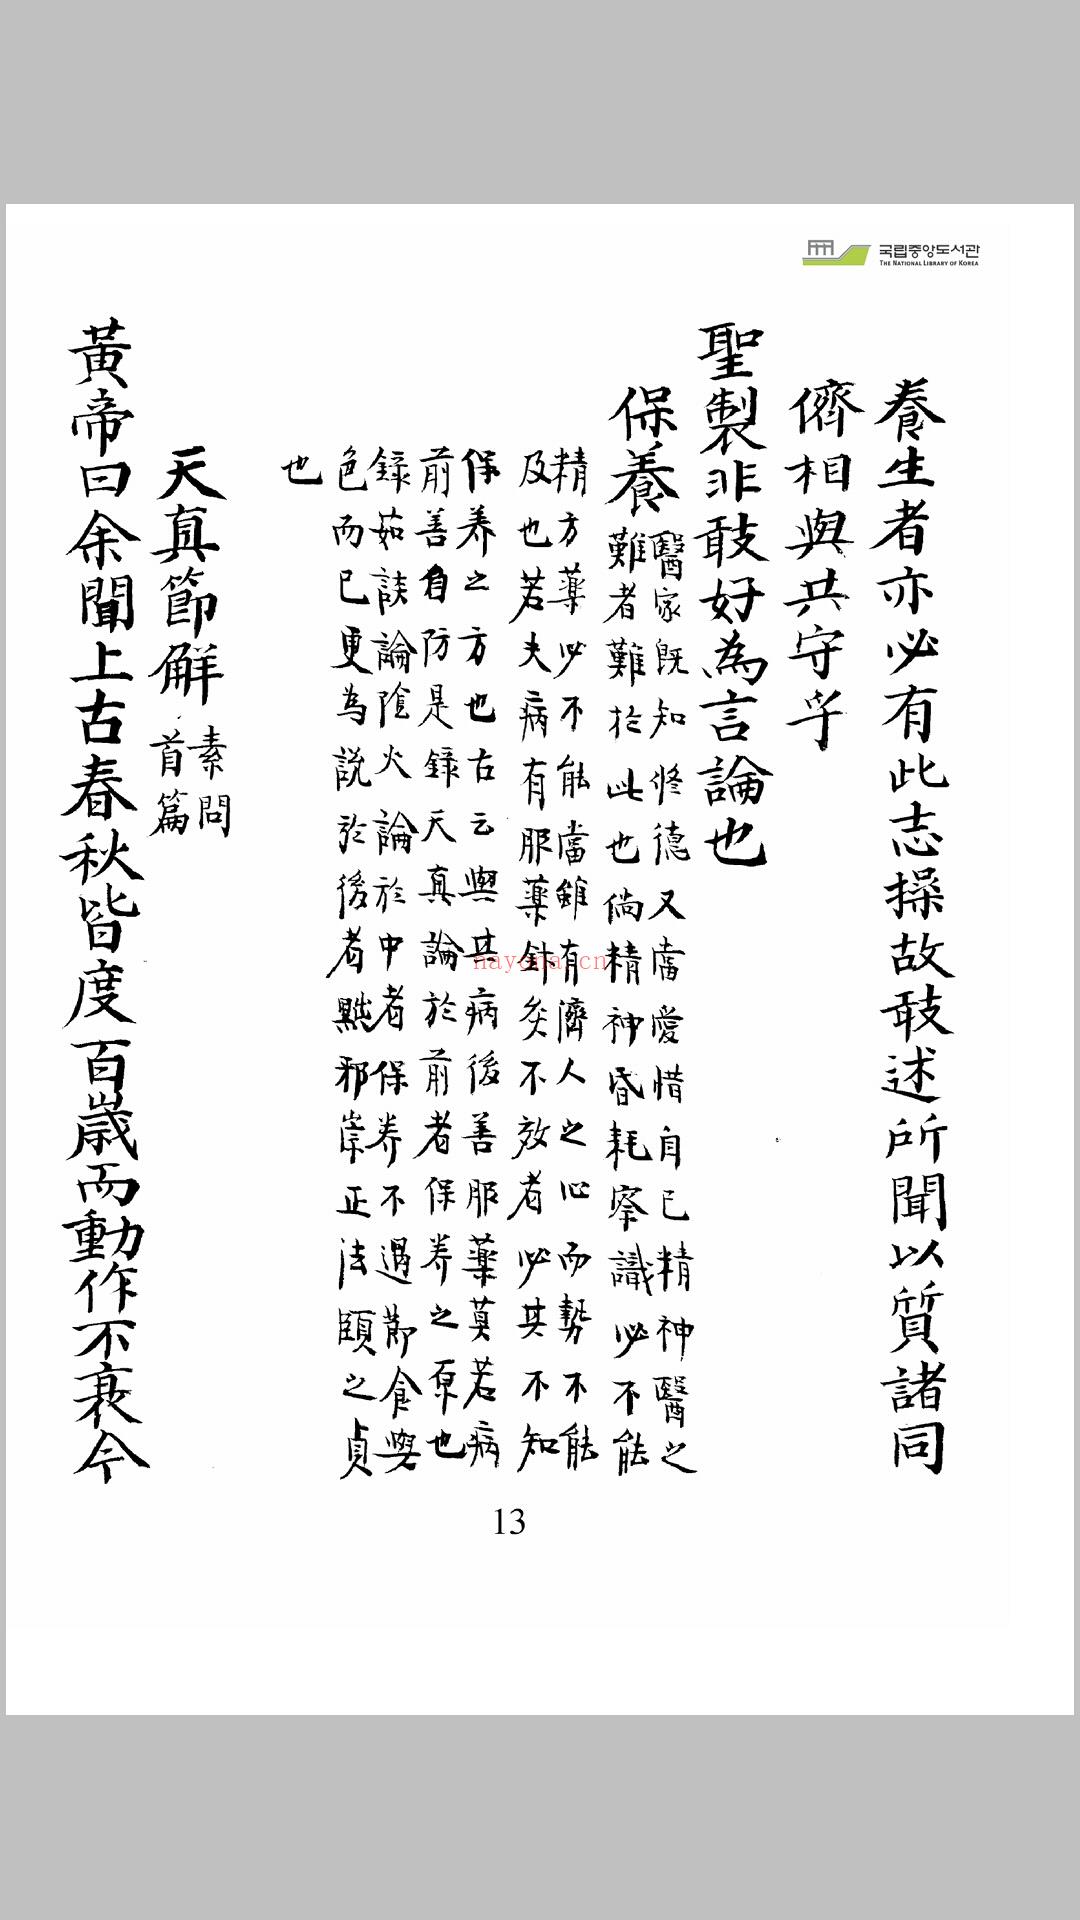 국립중앙도서관
THE NATIONAL LIBRARY OF KOREA
養生者亦必有此志操故敢述所聞以質諸同
儕相與共守乎
聖製非敢好為言論也
保養
醫家既知修德又當愛惜自已精神醫之
難者難於此也倘精神昏耗察識必不能
精方薬必不能當雖有濟人之心而勢不能
及也若夫病有服薬針灸不效者必其不知
保养之方也古云與其病後善服薬莫若病
前善自防是錄天真論於前者保养之原也
錄茹談論陰火論於中者保养不過節食與
色而已更為説於後者黜邪崇正法頤之貞
也
天真節解
素問
首篇
黃帝曰余聞上古春秋皆度百歲而動作不衰今
nayona.cn
13